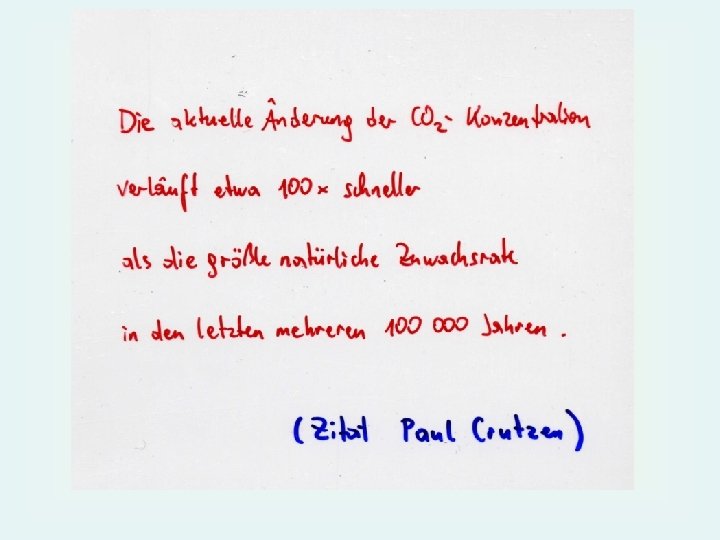 Die aktuelle Änderung der CO₂- Konzentration
verläuft etwa 100 x schneller
als die größte natürliche Zuwachsrate
in den letzten mehreren 100 000 Jahren.
(Zitat Paul Crutzen)